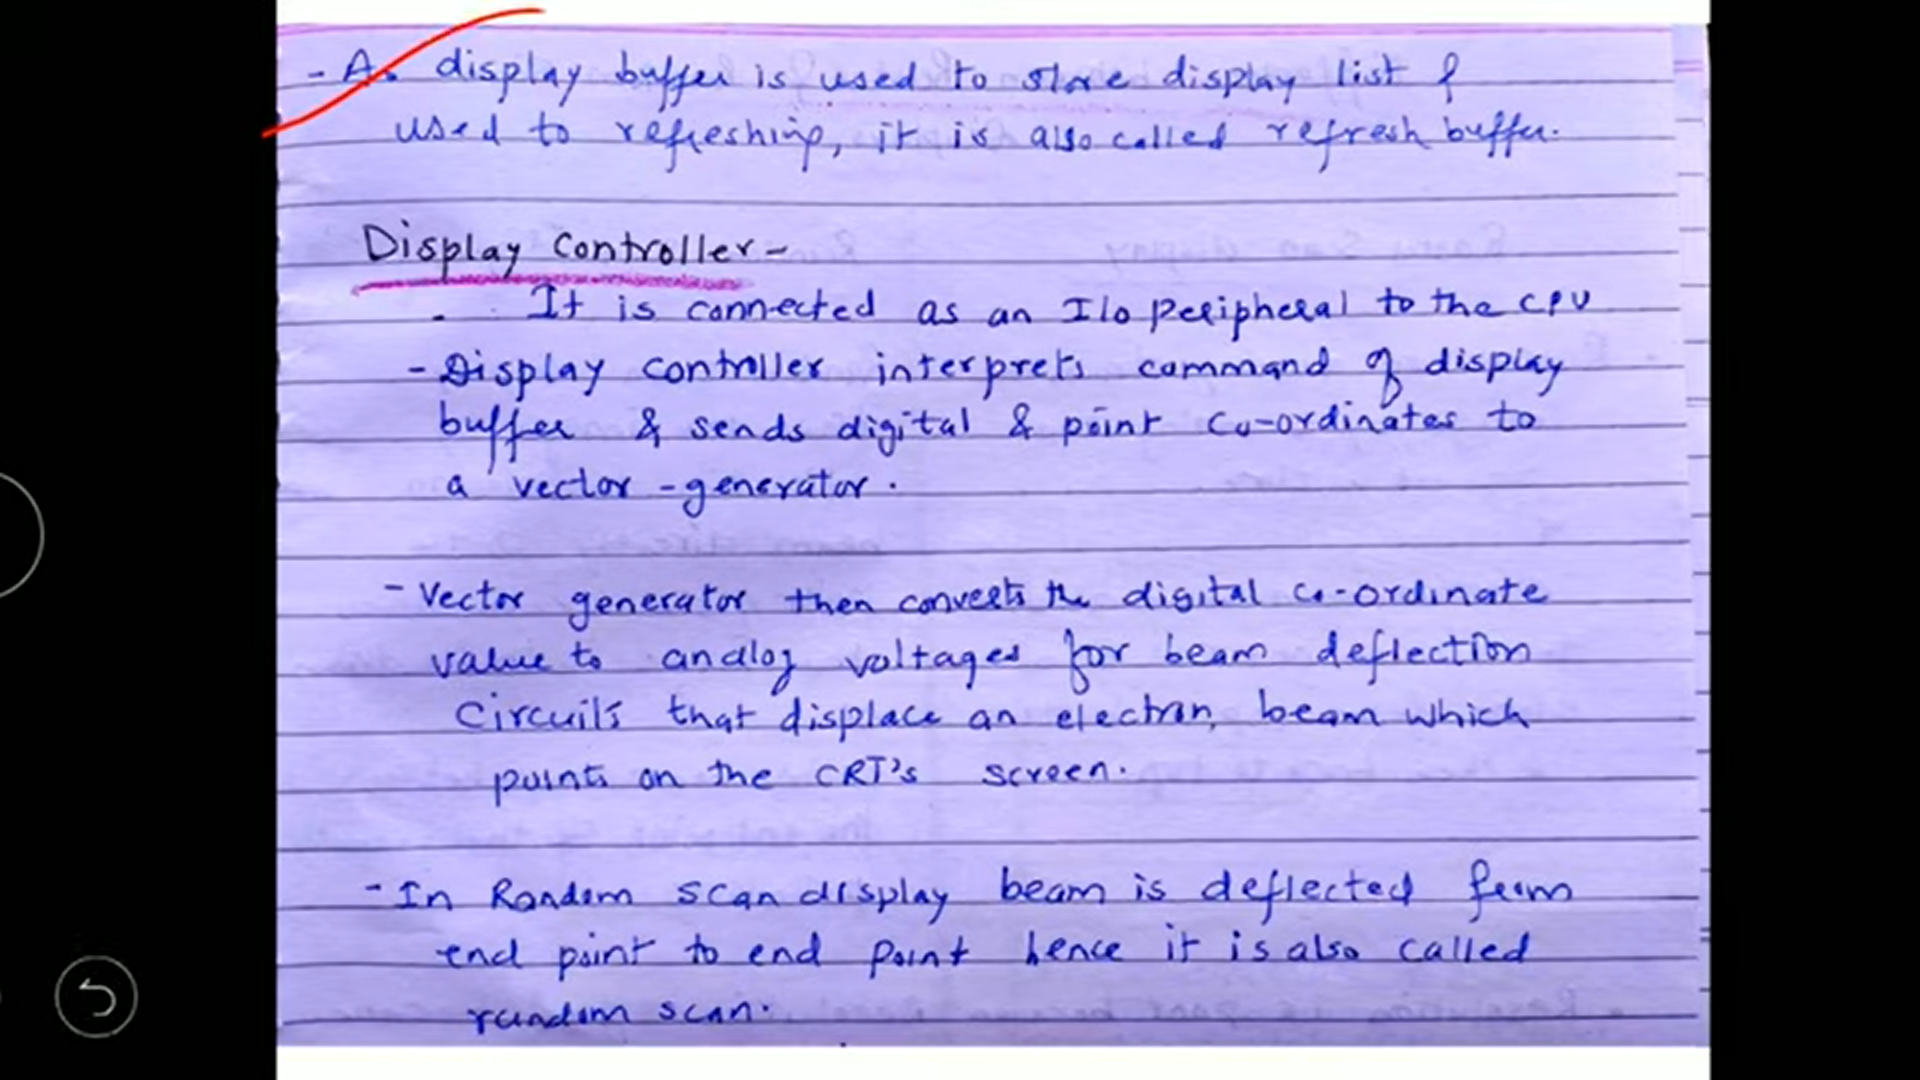 - As display buffer is used to store display list &
used to refreshing, it is also called refresh buffer.
Display Controller -
- It is connected as an I/o peripheral to the CPU
- Display controller interprets command of display
buffer & sends digital & point co-ordinates to
a vector - generator.
- Vector generator then converts the digital co-ordinate
value to analog voltages for beam deflection
Circuits that displace an electron beam which
points on the CRT's screen.
- In Random scan display beam is deflected from
end point to end point hence it is also called
random scan.